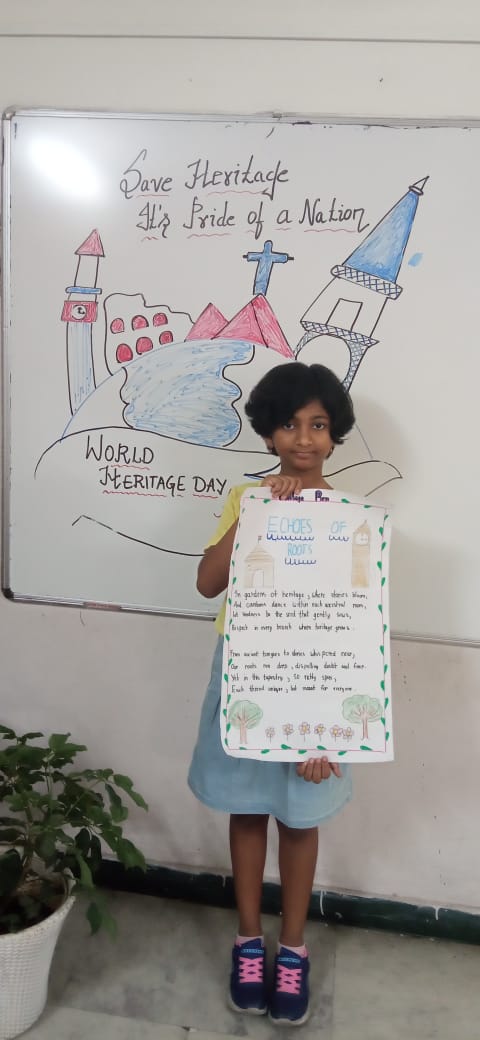 Save Heritage
It's Pride of a Nation
WORLD
HERITAGE DAY
ECHOES OF
ROOTS
In gardens of heritage, where stories bloom,
And customs dance within each ancestral room,
Let kindness be the seed that gently sows,
Respect in every branch where heritage grows.
From ancient tongues to stories whispered near,
Our roots run deep, dispelling doubt and fear.
Yet in this tapestry, so richly spun,
Each thread unique, but meant for everyone.